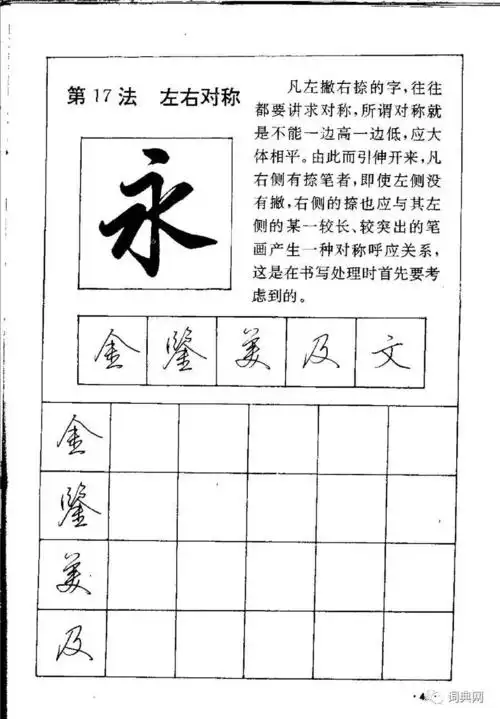 第17法 左右对称
凡左撇右捺的字,往往
都要讲求对称,所谓对称就
是不能一边高一边低,应大
体相平。由此而引伸开来,凡
右侧有捺笔者,即使左侧没
有撇,右侧的捺也应与其左
侧的某一较长、较突出的笔
画产生一种对称呼应关系,
这是在书写处理时首先要考
虑到的。
永
金 鑒 美 及 文
金
鑒
美
及
词典网